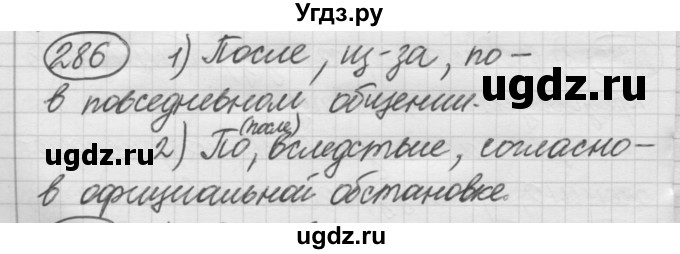 Угдз.ру
286 1) После, из-за, по -
в повседневном общении.
ugdz.ru
ugdz.ru
(после)
2) По, вследствие, согласно -
в официальной обстановке.
ugdz.ru
ugdz.ru